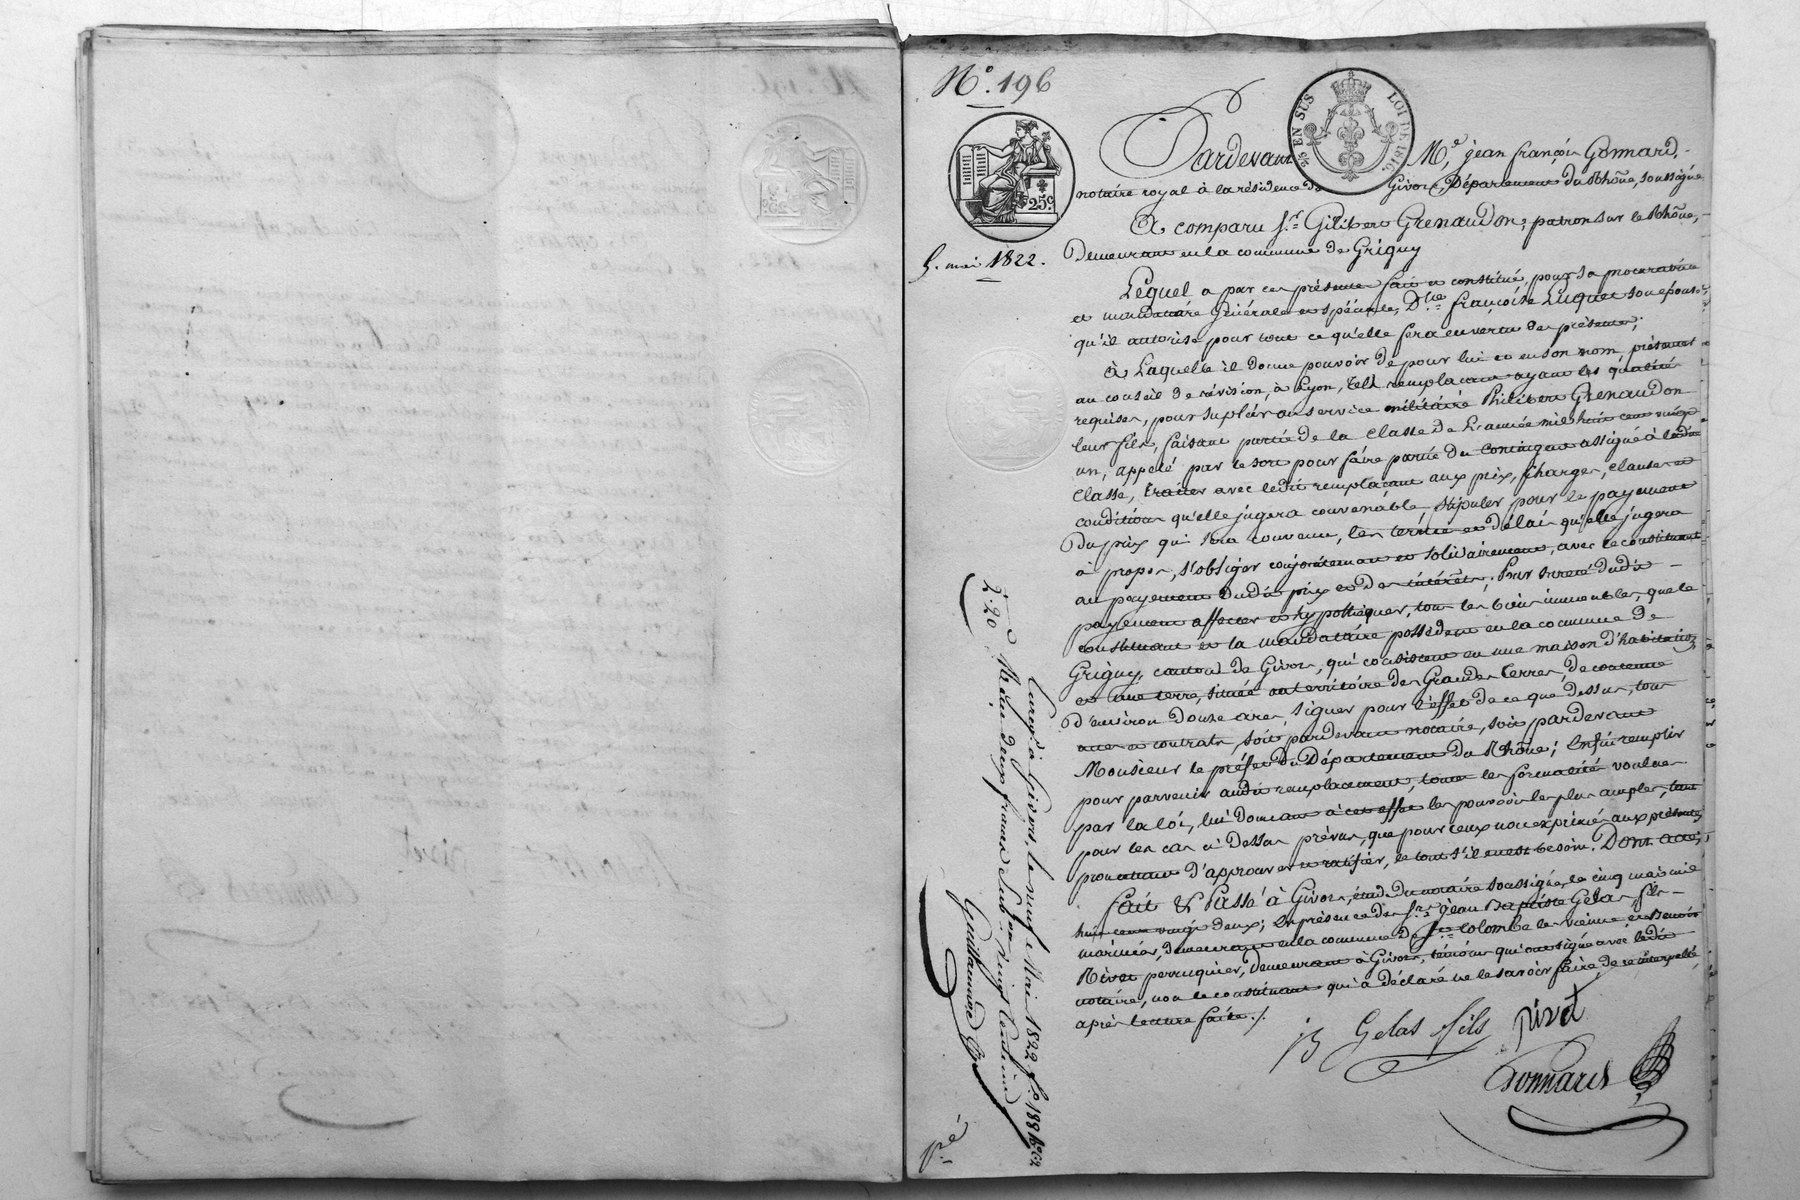 N.º 196
25 EN SUS
LOI DE 1816.
25c
5. mai 1822.
Pardevant Mᵉ. jean françois Gonnard,
notaire royal à la résidence de Givors, Département du Rhône, soussigné
A comparu Sʳ. Gilibert Grenaudon, patron sur le Rhône,
Demeurant en la commune de Grigny
Lequel a par ces présentes fait et constitué, pour sa procuratrice
et mandataire générale et spéciale, Dᵐᵉ françoise Luquet son épouse
qu'il autorise pour tout ce qu'elle fera en vertu des présentes;
à Laquelle il donne pouvoir de pour lui et en son nom, présenter
au conseil de révision, à Lyon, tels remplacant ayant les qualités
requises, pour supléer au service militaire Philibert Grenaudon
leur fils, faisant partie de la Classe de L'année mil huit cent vingt
un, appelé par le sort pour faire partie du Contingent assigné à ladite
Classe, traiter avec ledit remplaçant aux prix, Charges, clauses et
conditions qu'elle jugera convenable, stipuler pour le payement
Du prix qui sera convenu, les termes et délais qu'elle jugera
à propos, s'obliger conjointement et solidairement, avec le constituant
au payement Dudit prix et des intérêts; Pour sureté dudit
payement affecter et hypothéquer, tous les biens immeubles, que le
constituant et la mandataire possèdent en la commune de
Grigny, canton de Givors, qui consistent en une maison d'habitation,
et une terre, située au territoire des Grandes terres, de contenue
D'environ Douze ares, signer pour l'effet de ce que dessus, tous
actes et contrats, soit pardevant notaire, soit pardevant
Monsieur le préfet du Département du Rhône; Enfin remplir
pour parvenir audit remplacement, toutes les formalités voulues
par la loi, lui donnant à cet effet les pouvoirs les plus amples, tant
pour les cas ci Dessus prévus, que pour ceux non exprimés aux présentes,
promettant d'approuver et ratifier, le tout s'il en est besoin. Dont acte;
fait & Passé à Givors, étude du notaire soussigné, le cinq mai mil
huit cent vingt deux; En présence des Sʳˢ. jean Baptiste Gelas, fils
marinier, demeurant en la commune de Sᵗᵉ Colombe les vienne et Benoit
Rivet perruquier, Demeurant à Givors, témoins qui ont signé avec ledit
notaire, non le constituant qui a déclaré ne le savoir faire de ce interpellé
après lecture faite./.
JB Gelas fils
rivet
Gonnard
Enregᵉ à Givors, le neuf Mai 1822 fº. 188
2.20
Reçu deux francs Sub.ᵒⁿ vingt centimes
Guillaumod